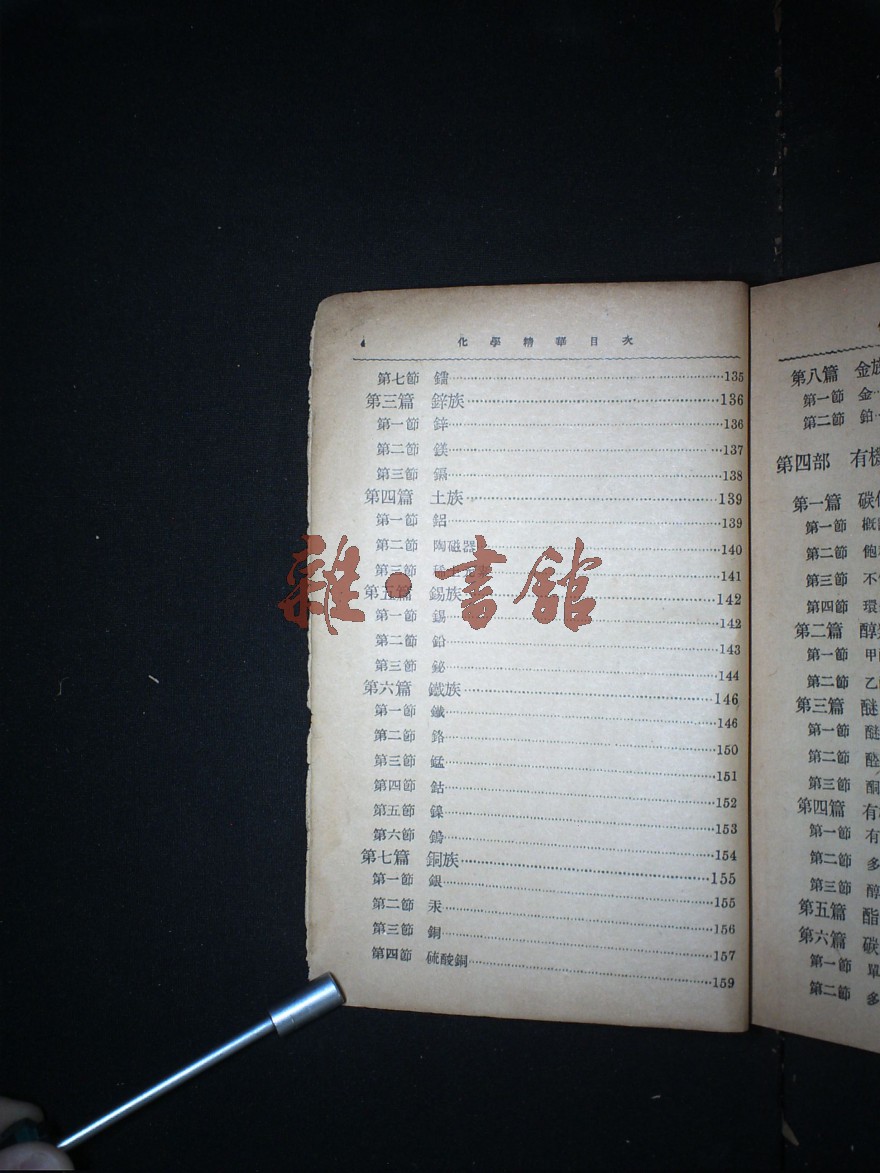 4 化學精華目次
第七節 鐳 135
第三篇 鋅族 136
第一節 鋅 136
第二節 鎂 137
第三節 鎘 138
第四篇 土族 139
第一節 鋁 139
第二節 陶磁器 140
第三節 稀土元素 141
第五篇 錫族 142
第一節 錫 142
第二節 鉛 143
第三節 鉍 144
第六篇 鐵族 146
第一節 鐵 146
第二節 鉻 150
第三節 錳 151
第四節 鈷 152
第五節 鎳 153
第六節 鎢 154
第七篇 銅族 155
第一節 銀 155
第二節 汞 156
第三節 銅 157
第四節 硫酸銅 159
雜·書館
第八篇 金族
第一節 金
第二節 鉑
第四部 有機
第一篇 碳
第一節 概
第二節 飽
第三節 不
第四節 環
第二篇 醇
第一節 甲
第二節 乙
第三篇 醚
第一節 醚
第二節
第三節 酮
第四篇 有
第一節 有
第二節 多
第三節 醇
第五篇 酯
第六篇 碳
第一節 單
第二節 多